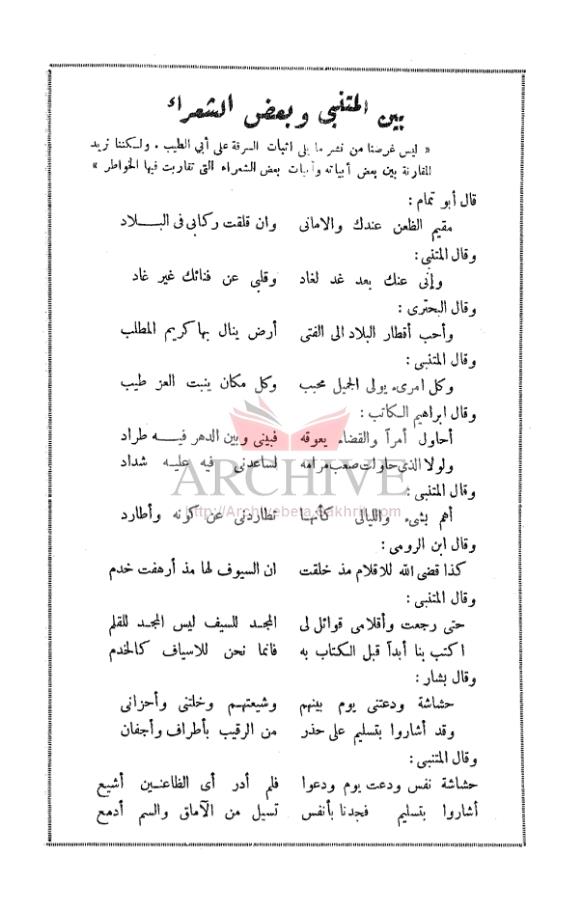 بين المتنبي وبعض الشعراء
« ليس غرضنا من نشر ما يلي اثبات السرقة على أبي الطيب . ولكننا نريد
المقارنة بين بعض أبياته وأبيات بعض الشعراء التي تقاربت فيها الخواطر »
قال أبو تمام :
مقيم الظعن عندك والامانى وان قلقت ركابى فى البـــلاد
وقال المتنبى :
وإنى عنك بعد غد لغاد وقلبى عن فنائك غير غاد
وقال البحترى :
وأحب أقطار البلاد الى الفتى أرض ينال بها كريم المطلب
وقال المتنبى :
وكل امرىء يولى الجميل محبب وكل مكان ينبت العز طيب
وقال ابراهيم الكاتب :
أحاول أمرآ والقضاء يعوقه فبينى وبين الدهر فيـــه طراد
ولولا الذى حاولت صعب مرامه لساعدنى فيه عليـه شداد
وقال المتنبى :
أهم بشىء والليالى كأنهـا تطاردنى عن كونه وأطارد
وقال ابن الرومى :
كذا قضى الله للاقلام مذ خلقت ان السيوف لها مذ أرهفت خدم
وقال المتنبى :
حتى رجعت وأقلامى قوائل لى المجـد للسيف ليس المجـد للقلم
اكتب بنا أبدآ قبل الكتاب به فانما نحن للاسياف كالخدم
وقال بشار :
حشاشة ودعتنى يوم بينهم وشيعتهـم وخلتنى وأحزانى
وقد أشاروا بتسليم على حذر من الرقيب بأطراف وأجفان
وقال المتنبى :
حشاشة نفس ودعت يوم ودعوا فلم أدر أى الظاعنـين أشيع
أشاروا بتسليم فجدنا بأنفس تسيل من الآماق والسم أدمع
ARCHIVE
http://Archivebeta.Sakhrit.com